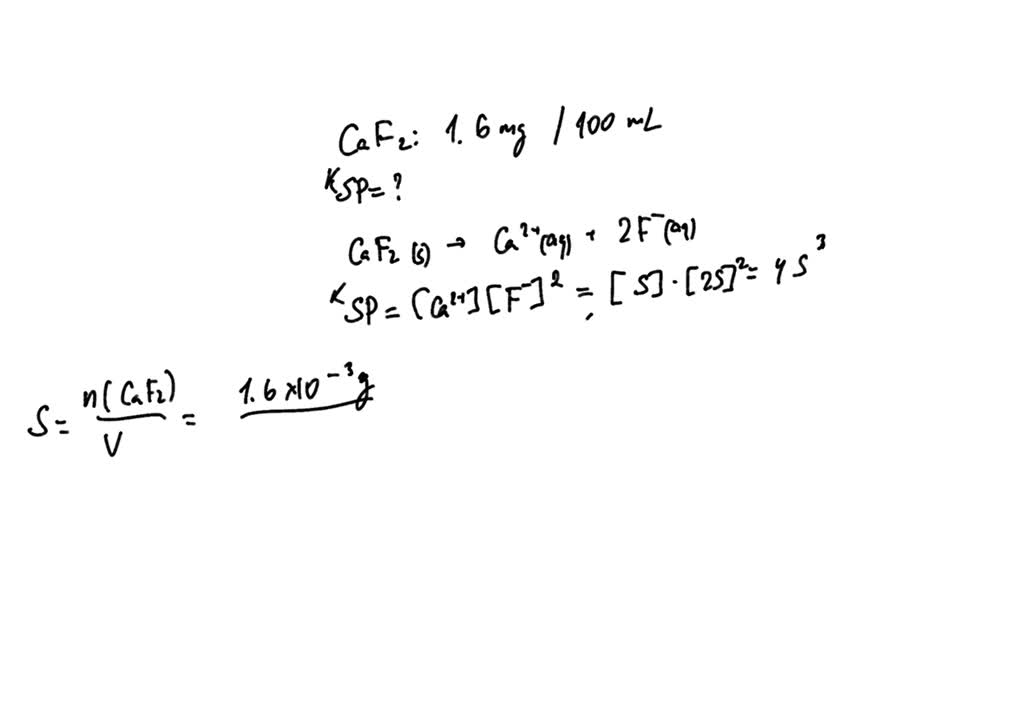 CaF₂: 1.6 mg / 100 mL
KSP = ?
CaF₂ (s) → Ca²⁺(aq) + 2F⁻(aq)
KSP = [Ca²⁺][F⁻]² = [S]·[2S]² = 4S³
S = n(CaF₂)/V = 1.6×10⁻³g